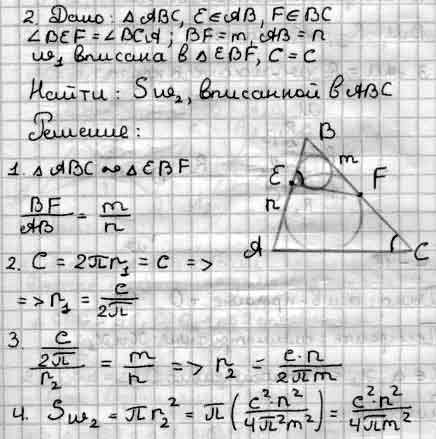 2. Дано: △ABC, E∈AB, F∈BC
∠BEF = ∠BCA; BF = m, AB = n
w₁ вписана в △EBF, C = c
Найти: Sw₂, вписанной в ABC
Решение:
1. △ABC ∾ △EBF
BF/AB = m/n
2. C = 2πr₁ = c =>
=> r₁ = c/2π
3. (c/2π)/r₂ = m/n => r₂ = c·n/2πm
4. Sw₂ = πr₂² = π(c²·n²/4π²m²) = c²·n²/4πm²
B
m
E
F
n
A
C